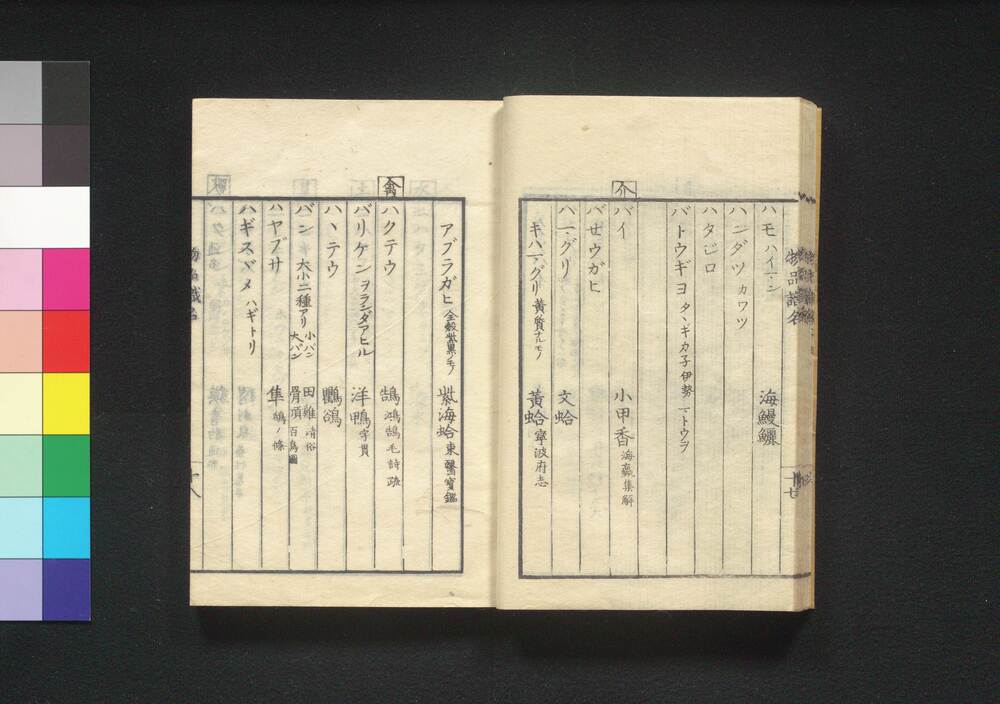 ハモ ハイマン 海鰻鱺
ハンダツ カワツ
ハタジロ
バトウギヨ タヽギカ子伊勢 マトウヲ
介
バイ 小甲香 海蠃集解
バセウガヒ
ハマグリ 文蛤
キハマグリ 黄質ナルモノ 黃蛤 寧波府志
物品識名
十七
アブラガヒ 全殼紫黒ノモノ 紫海蛤 東醫寶鑑
禽
ハクテウ 鵠 鴻鵠毛詩疏
バリケン ヲランダアヒル 洋鴨 字貫
ハヽテウ 鸜鵒
バン 大小二種アリ 小バン 田雞 清俗
大バン 骨頂 百鳥圖
ハヤブサ 隼 鴘ノ條
ハギスヾメ ハギトリ
十八